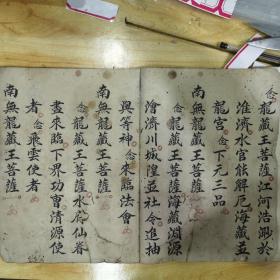 念龍藏王菩薩江河浩渺於
淮濟水官能解厄海藏並
龍宮 念下元三品
南無龍藏王菩薩
念龍藏王菩薩海藏淵源
澮濟川城隍並社令進抽
與等神 念來臨法會
南無龍藏王菩薩
念龍藏王菩薩水府仙眷
盡來臨下界功曹清源使
者 念飛雲使者
南無龍藏王菩薩